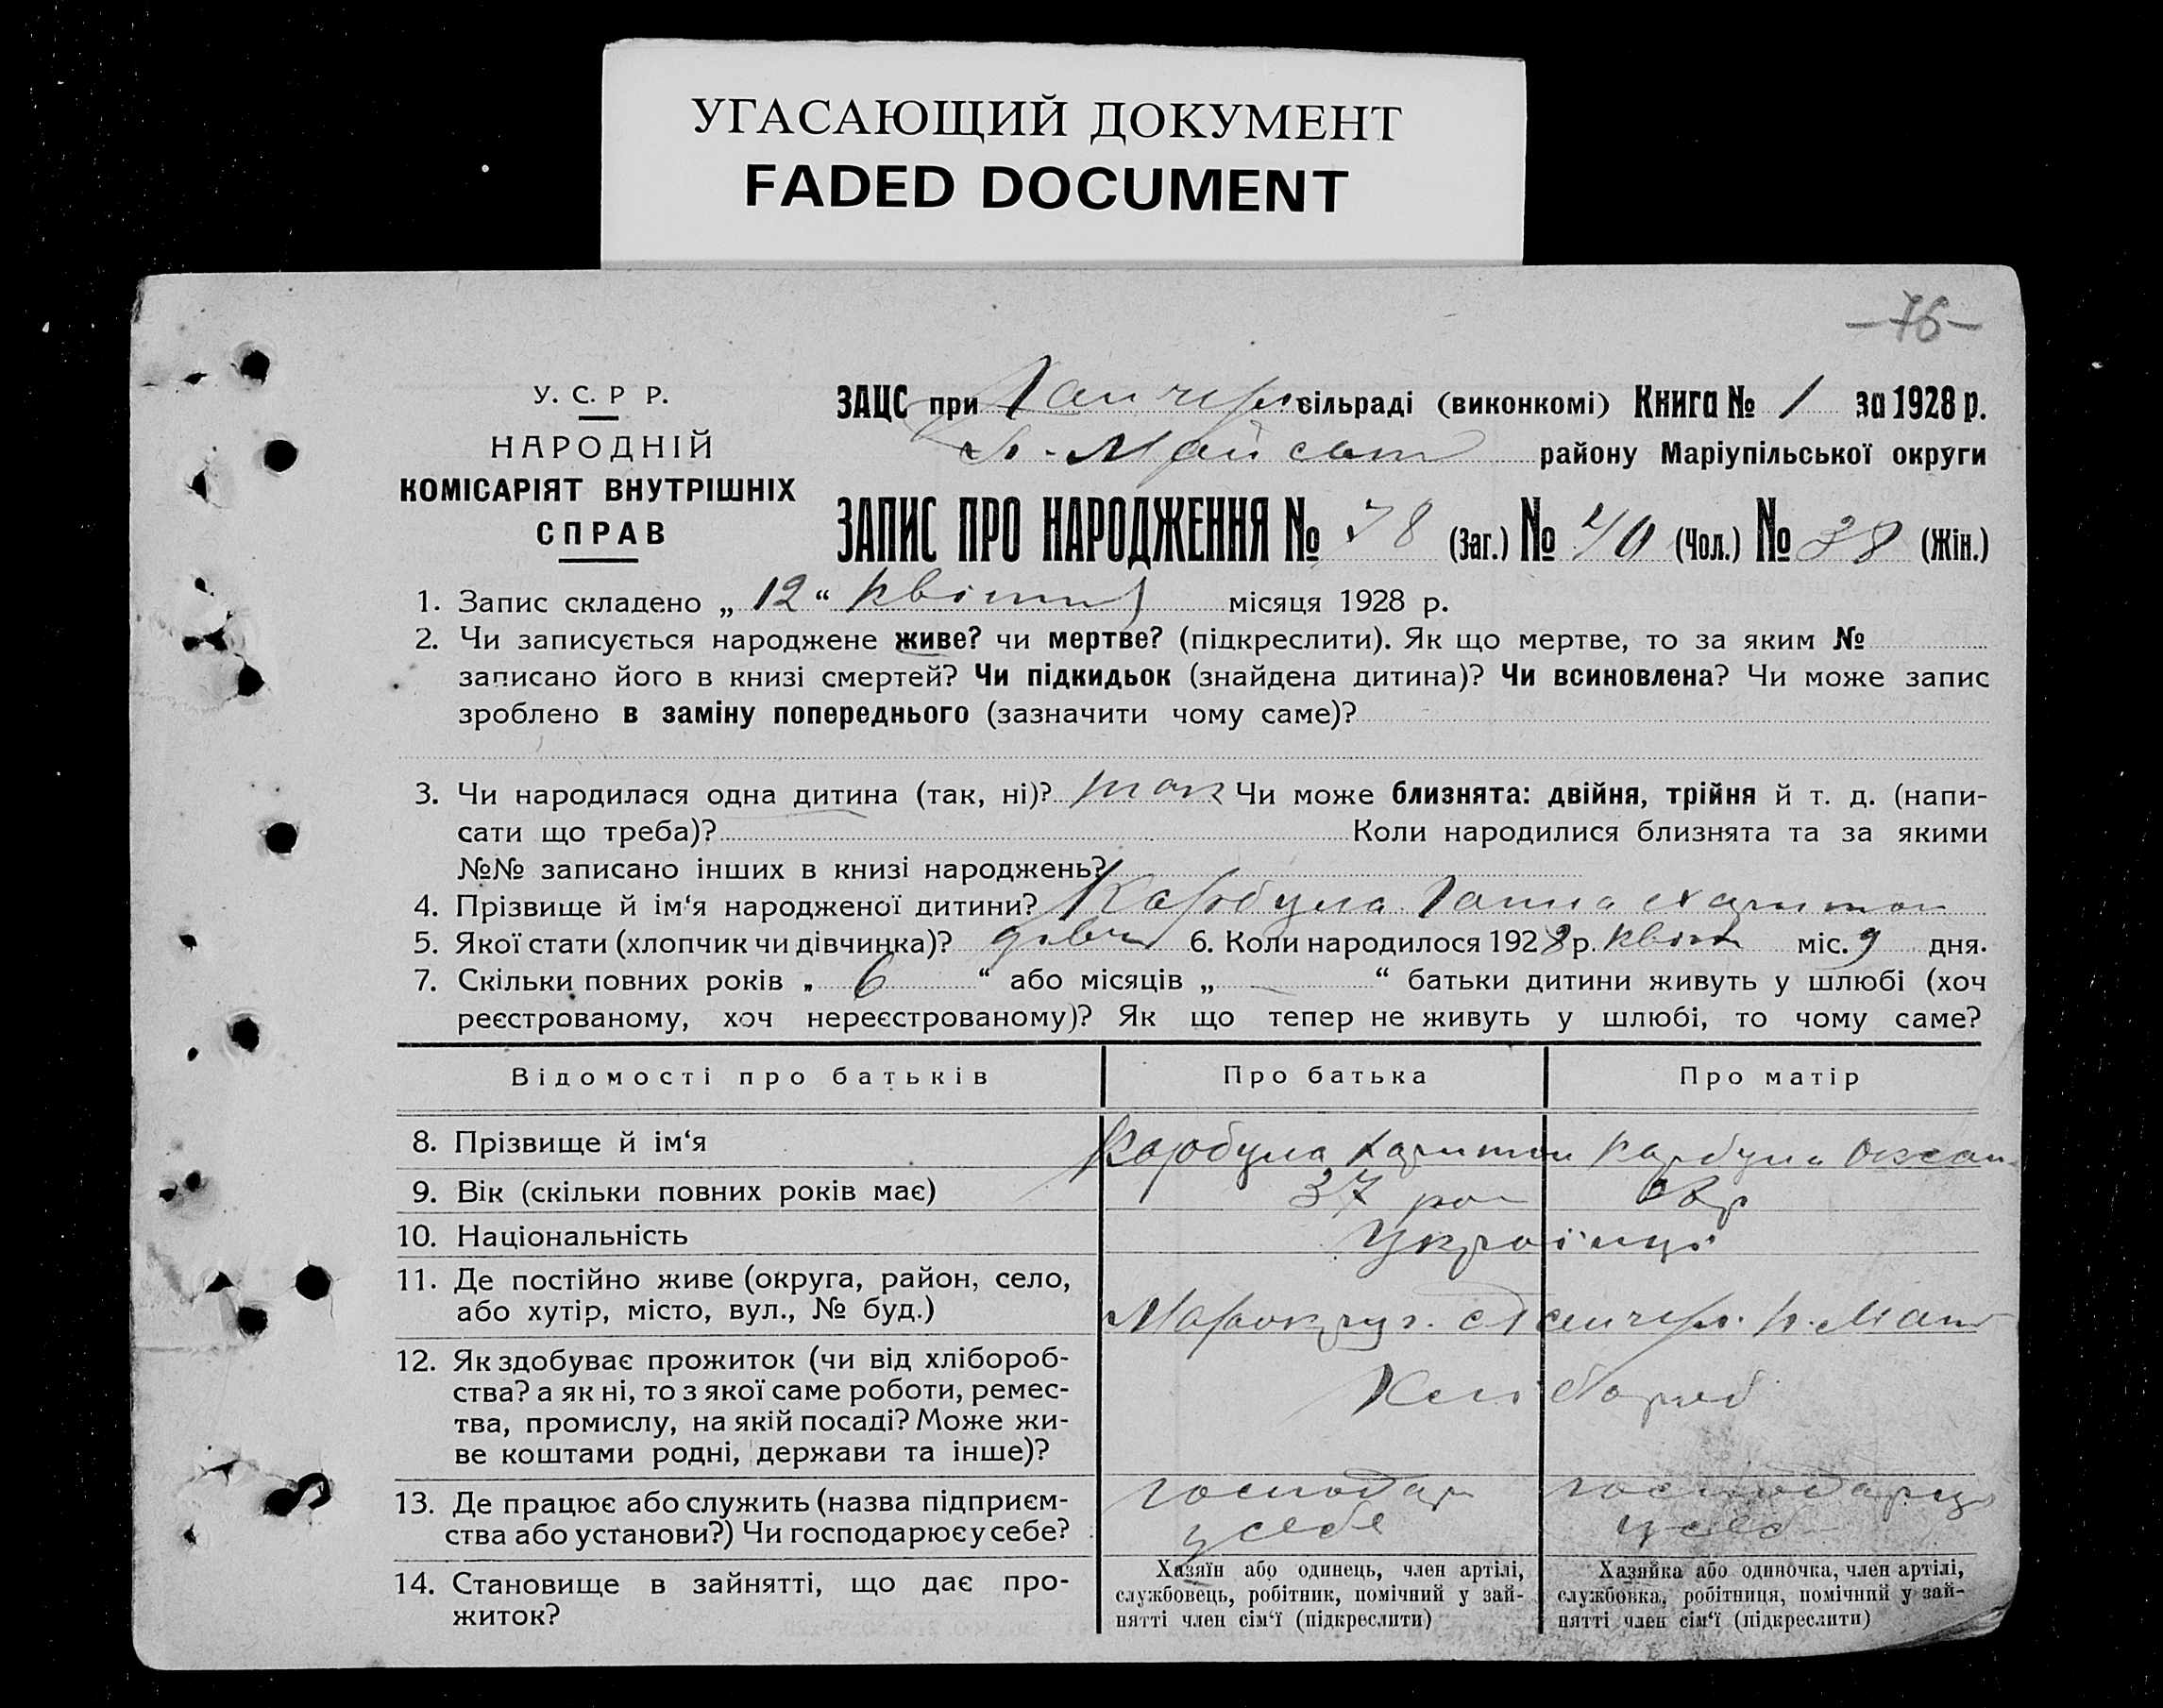 УГАСАЮЩИЙ ДОКУМЕНТ
FADED DOCUMENT
–76–
У. С. Р Р.
НАРОДНІЙ
КОМІСАРІЯТ ВНУТРІШНІХ
СПРАВ
ЗАЦС при сільраді (виконкомі) Книга № 1 за 1928 р.
району Маріупільської округи
ЗАПИС ПРО НАРОДЖЕННЯ № 78 (Заг.) № 40 (Чол.) № 38 (Жін.)
1. Запис складено „ 12 “ квітня місяця 1928 р.
2. Чи записується народжене живе? чи мертве? (підкреслити). Як що мертве, то за яким №
записано його в книзі смертей? Чи підкидьок (знайдена дитина)? Чи всиновлена? Чи може запис
зроблено в заміну попереднього (зазначити чому саме)?
3. Чи народилася одна дитина (так, ні)? так Чи може близнята: двійня, трійня й т. д. (напи-
сати що треба)? Коли народилися близнята та за якими
№№ записано інших в книзі народжень?
4. Прізвище й ім‘я народженої дитини? Карбула Ганна Харитон
5. Якої стати (хлопчик чи дівчинка)? дівч 6. Коли народилося 1928 р. квіт міс. 9 дня.
7. Скільки повних років „ 6 “ або місяців „ — “ батьки дитини живуть у шлюбі (хоч
реєстрованому, хоч нереєстрованому)? Як що тепер не живуть у шлюбі, то чому саме?
Відомості про батьків Про батька Про матір
8. Прізвище й ім‘я Карбула Харитон Карбула Оксан
9. Вік (скільки повних років має) 37 рок
10. Національність Українці
11. Де постійно живе (округа, район, село,
або хутір, місто, вул., № буд.)
12. Як здобуває прожиток (чи від хлібороб-
ства? а як ні, то з якої саме роботи, ремес-
тва, промислу, на якій посаді? Може жи-
ве коштами родні, держави та інше)?
Хлібороб
13. Де працює або служить (назва підприєм-
ства або установи?) Чи господарює у себе?
господар у себе
господарює у себе
14. Становище в зайнятті, що дає про-
житок?
Хазяїн або одинець, член артілі,
службовець, робітник, помічний у зай-
нятті член сім‘ї (підкреслити)
Хазяйка або одиночка, член артілі,
службовка, робітниця, помічний у зай-
нятті член сім‘ї (підкреслити)